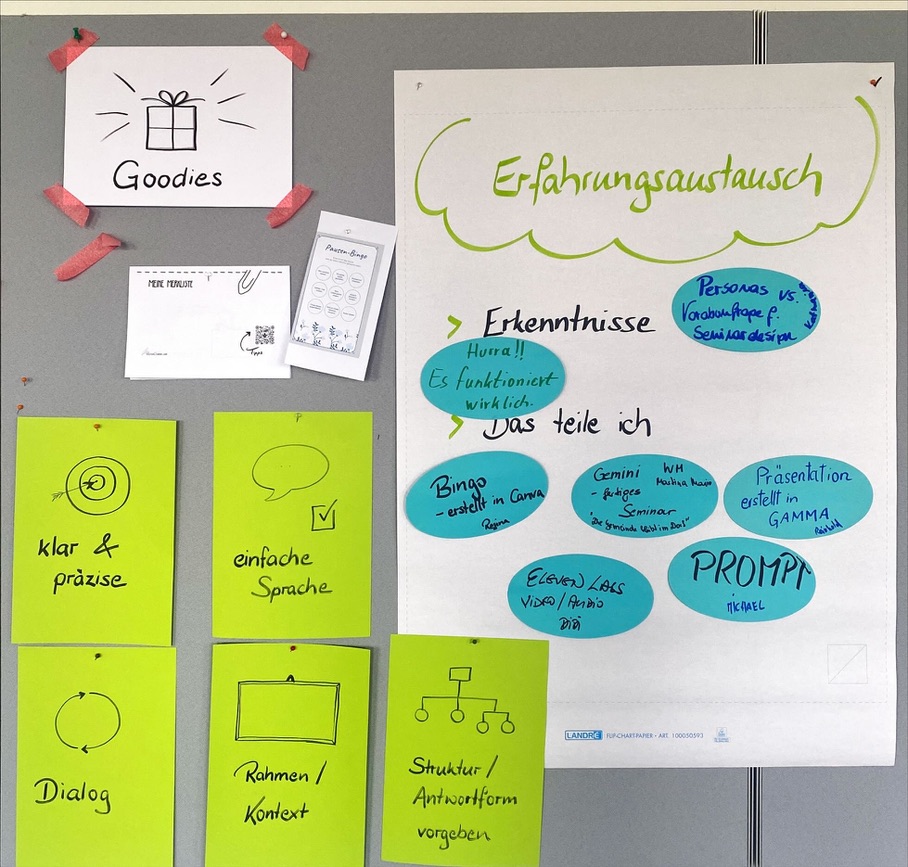 Goodies
MEINE MERKLISTE
Tipps
Pausen-Bingo
Erfahrungsaustausch
Personas vs.
Vorabumfrage f.
Seminardesign
> Erkenntnisse
Hurra!!
Es funktioniert
wirklich.
> Das teile ich
Bingo
- erstellt in Canva
Regina
Gemini WM
- fertiges
Seminar
Präsentation
erstellt in
GAMMA
ELEVEN LABS
VIDEO/AUDIO
BIBI
PROMPT
MICHAEL
klar &
präzise
einfache
Sprache
Dialog
Rahmen/
Kontext
Struktur/
Antwortform
vorgeben
LANDRÉ FLIP-CHART-PAPIER • ART. 100050593